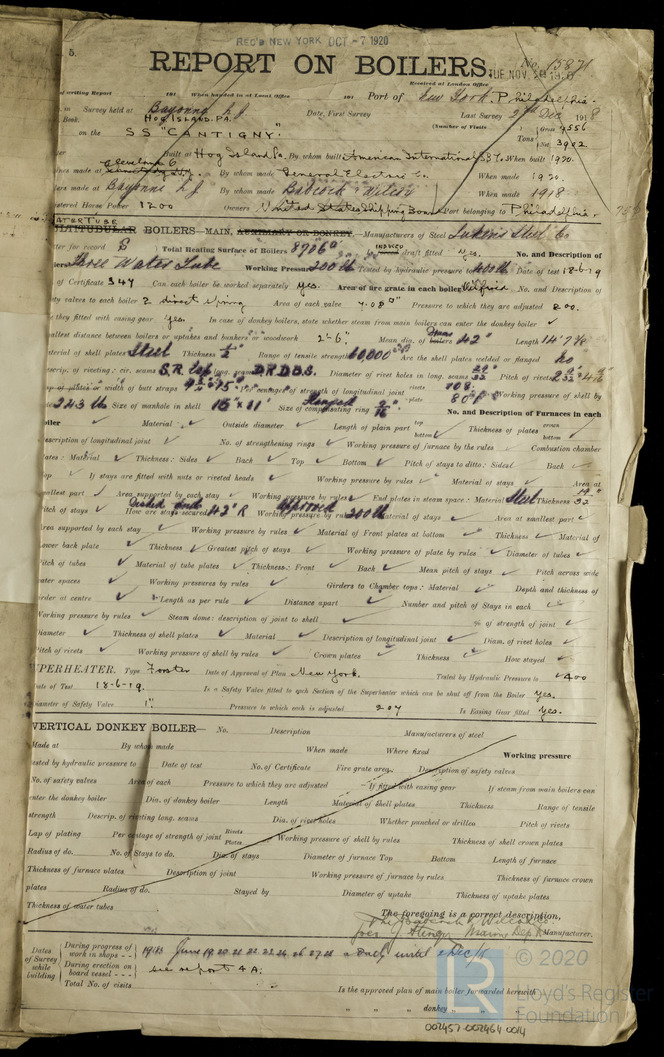 REC'D NEW YORK OCT -7 1920
5.
REPORT ON BOILERS.
No. 15871
Received at London Office
TUE. NOV.
Date of writing Report 191 When handed in at Local Office 191 Port of New York. Philadelphia.
Survey held at Bayonne N J Date, First Survey Last Survey 2nd Dec 1918
Book. HOG ISLAND. PA. (Number of Visits
on the SS "CANTIGNY." Tons Gross 9556
Net 3902
Built at Hog Island Pa. By whom built American International S.B. When built 1920.
made at Cleveland O By whom made General Electric Co. When made 1920.
made at Bayonne N J By whom made Babcock & Wilcox When made 1918
Horse Power 1200 Owners United States Shipping Board Port belonging to Philadelphia.
WATERTUBE
MULTITUBULAR BOILERS—MAIN, AUXILIARY OR DONKEY.—Manufacturers of Steel Lukens Steel Co
for record S Total Heating Surface of Boilers 8706 INDUCED draft fitted No. and Description of
Three Water Tube Working Pressure 200 lb Tested by hydraulic pressure to 400 lb Date of test 18-6-19
of Certificate 344 Can each boiler be worked separately Yes. Area of fire grate in each boiler No. and Description of
safety valves to each boiler 2 direct spring Area of each valve 7.08 Pressure to which they are adjusted 200.
Are they fitted with easing gear Yes. In case of donkey boilers, state whether steam from main boilers can enter the donkey boiler ✓
smallest distance between boilers or uptakes and bunkers or woodwork 2'-6" Mean dia. of boilers Drums 42" Length 14' 7 7/8
material of shell plates Steel Thickness 1/2 Range of tensile strength 60,000 Are the shell plates welded or flanged No
Descrip. of riveting: cir. seams S.R. Lap long. seams D.R.D.B.S. Diameter of rivet holes in long. seams 29/32 Pitch of rivets
lap of plates or width of butt straps Percentage of strength of longitudinal joint Working pressure of shell by
243 lb Size of manhole in shell 15" x 11" Size of compensating ring Flanged No. and Description of Furnaces in each
boiler Material ✓ Outside diameter ✓ Length of plain part top bottom ✓ Thickness of plates crown bottom ✓
Description of longitudinal joint ✓ No. of strengthening rings ✓ Working pressure of furnace by the rules ✓ Combustion chamber
plates: Material ✓ Thickness: Sides ✓ Back ✓ Top ✓ Bottom ✓ Pitch of stays to ditto: Sides ✓ Back ✓
Top ✓ If stays are fitted with nuts or riveted heads ✓ Working pressure by rules ✓ Material of stays ✓ Area at
smallest part ✓ Area supported by each stay ✓ Working pressure by rules ✓ End plates in steam space: Material Steel Thickness 19/32
Pitch of stays ✓ How are stays secured Dished ends 42" R Working pressure by rules Approved 200 lb Material of stays ✓ Area at smallest part ✓
Area supported by each stay ✓ Working pressure by rules ✓ Material of Front plates at bottom ✓ Thickness ✓ Material of
Lower back plate ✓ Thickness ✓ Greatest pitch of stays ✓ Working pressure of plate by rules ✓ Diameter of tubes ✓
Pitch of tubes ✓ Material of tube plates ✓ Thickness: Front ✓ Back ✓ Mean pitch of stays ✓ Pitch across wide
water spaces ✓ Working pressures by rules ✓ Girders to Chamber tops: Material ✓ Depth and thickness of
girder at centre ✓ Length as per rule ✓ Distance apart ✓ Number and pitch of Stays in each ✓
Working pressure by rules ✓ Steam dome: description of joint to shell ✓ % of strength of joint ✓
Diameter ✓ Thickness of shell plates ✓ Material ✓ Description of longitudinal joint ✓ Diam. of rivet holes ✓
Pitch of rivets ✓ Working pressure of shell by rules ✓ Crown plates ✓ Thickness ✓ How stayed ✓
SUPERHEATER. Type Foster Date of Approval of Plan New York. Tested by Hydraulic Pressure to 400
Date of Test 18-6-19. Is a Safety Valve fitted to each Section of the Superheater which can be shut off from the Boiler Yes.
Diameter of Safety Valve 1" Pressure to which each is adjusted 207 Is Easing Gear fitted Yes.
VERTICAL DONKEY BOILER— No. Description Manufacturers of steel
Made at By whom made When made Where fixed Working pressure
tested by hydraulic pressure to Date of test No. of Certificate Fire grate area Description of safety valves
No. of safety valves Area of each Pressure to which they are adjusted If fitted with easing gear If steam from main boilers can
enter the donkey boiler Dia. of donkey boiler Length Material of shell plates Thickness Range of tensile
strength Descrip. of riveting long. seams Dia. of rivet holes Whether punched or drilled Pitch of rivets
Lap of plating Per centage of strength of joint Rivets Plates Working pressure of shell by rules Thickness of shell crown plates
Radius of do. No. of Stays to do. Dia. of stays Diameter of furnace Top Bottom Length of furnace
Thickness of furnace plates Description of joint Working pressure of furnace by rules Thickness of furnace crown
plates Radius of do. Stayed by Diameter of uptake Thickness of uptake plates
Thickness of water tubes
The foregoing is a correct description,
The Babcock & Wilcox Co
Manufacturer.
Dates of Survey while building
During progress of work in shops - - 1918 June 19. 20. 21. 22. 23. 24. 26. 27. 28 & Daily until Dec/18
During erection on board vessel - - - see report 4A.
Total No. of visits
Is the approved plan of main boiler forwarded herewith
" " " donkey " " "
LR © 2020
Lloyd's Register
Foundation
002457-002464-0014